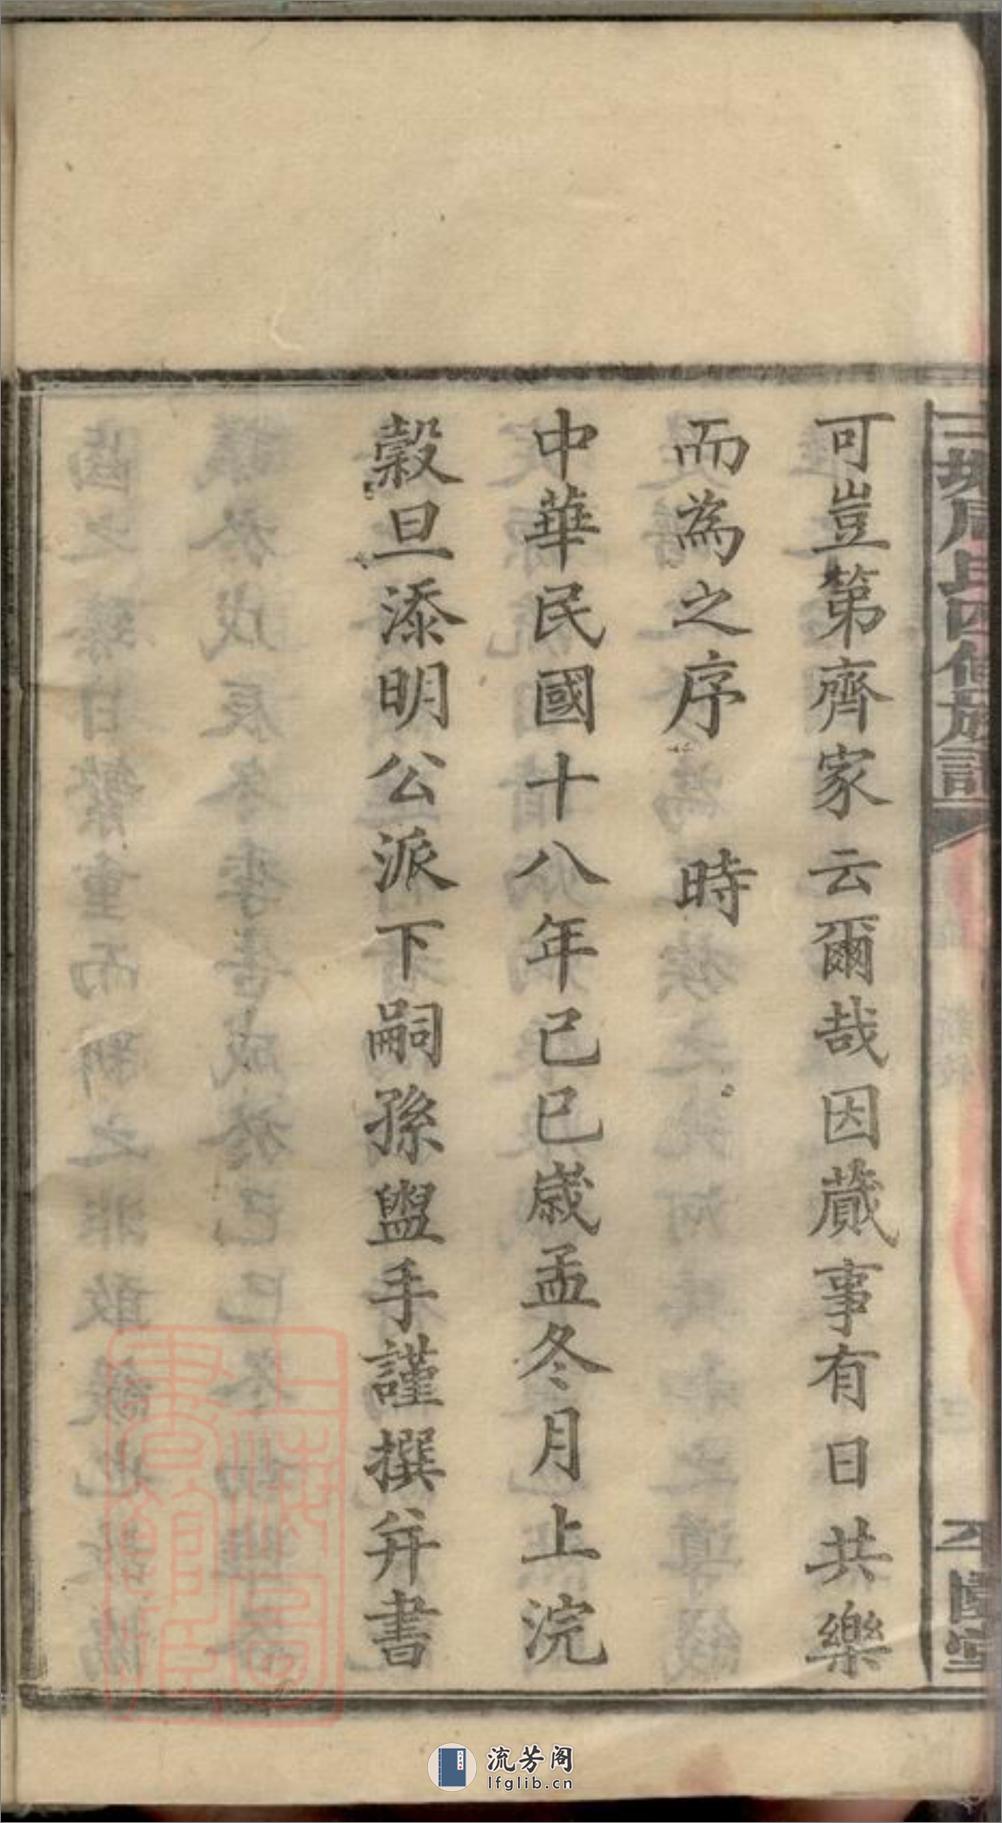 可豈第齊家云爾哉因蕆事有日共樂
而為之序　時
中華民國十八年己巳歲孟冬月上浣
穀旦添明公派下嗣孫盥手謹撰并書
周氏四修族譜
上海圖書館藏
流芳阁
lfglib.cn